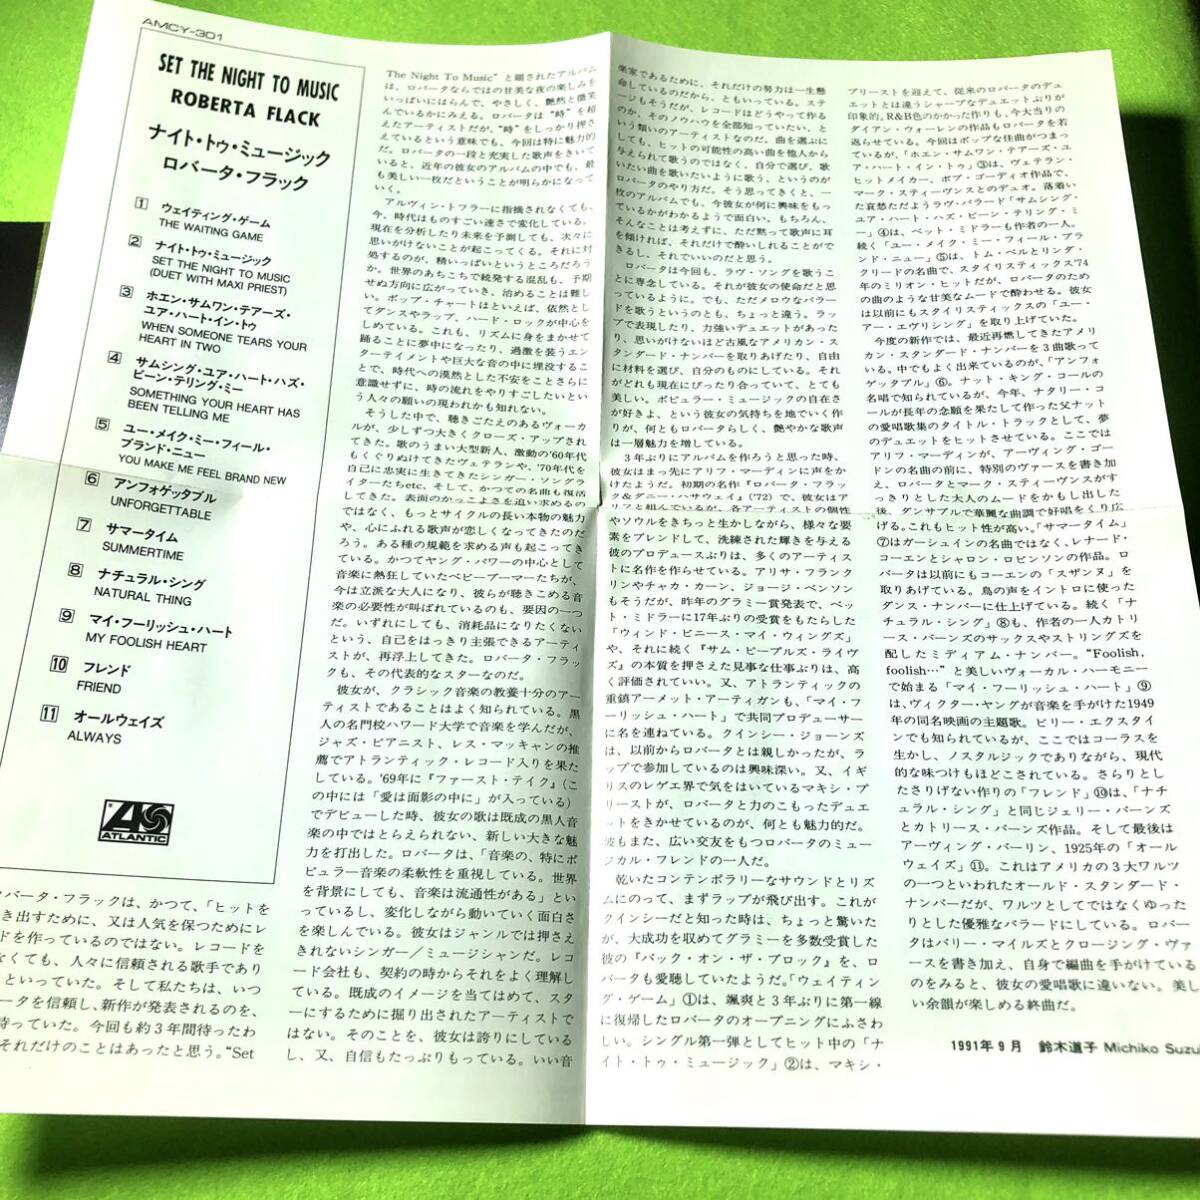 AMCY-301
SET THE NIGHT TO MUSIC
ROBERTA FLACK
ナイト・トゥ・ミュージック
ロバータ・フラック
1 ウェイティング・ゲーム
THE WAITING GAME
2 ナイト・トゥ・ミュージック
SET THE NIGHT TO MUSIC
(DUET WITH MAXI PRIEST)
3 ホエン・サムワン・テアーズ・
ユア・ハート・イン・トゥ
WHEN SOMEONE TEARS YOUR
HEART IN TWO
4 サムシング・ユア・ハート・ハズ・
ビーン・テリング・ミー
SOMETHING YOUR HEART HAS
BEEN TELLING ME
5 ユー・メイク・ミー・フィール・
ブランド・ニュー
YOU MAKE ME FEEL BRAND NEW
6 アンフォゲッタブル
UNFORGETTABLE
7 サマータイム
SUMMERTIME
8 ナチュラル・シング
NATURAL THING
9 マイ・フーリッシュ・ハート
MY FOOLISH HEART
10 フレンド
FRIEND
11 オールウェイズ
ALWAYS
ATLANTIC
バータ・フラックは、かつて、「ヒットを
き出すために、又は人気を保つためにレ
ドを作っているのではない。レコードを
なくても、人々に信頼される歌手であり
といっていた。そして私たちは、いつ
ータを信頼し、新作が発表されるのを、
待っていた。今回も約3年間待ったわ
それだけのことはあったと思う。“Set
The Night To Music” と題されたアルバム
は、ロバータならではの甘美な夜の楽しみを
いっぱいにはらんで、やさしく、艶然と微笑
んでいるかにみえる。ロバータは“時”を超
えたアーティストだが、“時”をしっかり押さ
えているという意味でも、今回は特に魅力的
だ。ロバータの一段と充実した歌声をきいて
いると、近年の彼女のアルバムの中でも、最
も美しい一枚だということが明らかになって
いく。
アルヴィン・トフラーに指摘されなくても、
今、時代はものすごい速さで変化している。
現在を分析したり未来を予測しても、次々に
思いがけないことが起こってくる。それに対
処するのが、精いっぱいというところだろう
か。世界のあちこちで続発する混乱も、予期
せぬ方向に広がっていき、治めることは難し
い。ポップ・チャートはといえば、依然とし
てダンスやラップ、ハード・ロックが中心を
しめている。これも、リズムに身をまかせて
踊ることに夢中になったり、過激を装うエン
ターテイメントや巨大な音の中に埋没するこ
とで、時代への漠然とした不安をことさらに
意識せずに、時の流れをやりすごしたいとい
う人々の願いの現われかも知れない。
そうした中で、聴きごたえのあるヴォーカ
ルが、少しずつ大きくクローズ・アップされ
てきた。歌のうまい大型新人、激動の'60年代
もくぐりぬけてきたヴェテランや、'70年代を
自己に忠実に生きてきたシンガー・ソングラ
イターたちetc. そして、かつての名曲も復活
してきた。表面のかっこよさを追い求めるの
ではなく、もっとサイクルの長い本物の魅力
や、心にふれる歌声が恋しくなってきたのだ
ろう。ある種の規範を求める声も起こってき
ている。かつてヤング・パワーの中心として
音楽に熱狂していたベビーブーマーたちが、
今は立派な大人になり、彼らが聴きこめる音
楽の必要性が叫ばれているのも、要因の一つ
だ。いずれにしても、消耗品になりたくない
という、自己をはっきり主張できるアーティ
ストが、再浮上してきた。ロバータ・フラッ
クも、その代表的なスターなのだ。
彼女が、クラシック音楽の教養十分のアー
ティストであることはよく知られている。黒
人の名門校ハワード大学で音楽を学んだが、
ジャズ・ピアニスト、レス・マッキャンの推
薦でアトランティック・レコード入りを果た
している。'69年に『ファースト・テイク』(こ
の中には「愛は面影の中に」が入っている)
でデビューした時、彼女の歌は既成の黒人音
楽の中ではとらえられない、新しい大きな魅
力を打出した。ロバータは、「音楽の、特にポ
ピュラー音楽の柔軟性を重視している。世界
を背景にしても、音楽は流通性がある」とい
っているし、変化しながら動いていく面白さ
を楽しんでいる。彼女はジャンルでは押さえ
きれないシンガー/ミュージシャンだ。レコ
ード会社も、契約の時からそれをよく理解し
ている。既成のイメージを当てはめて、スタ
ーにするために掘り出されたアーティストで
はない。そのことを、彼女は誇りにしている
し、又、自信もたっぷりもっている。いい音
楽家であるために、それだけの努力は一生懸
命しているのだから、ともいっている。ステ
ージもそうだが、レコードはどうやって作る
のか、そのノウハウを全部知っていたい、と
いう類いのアーティストなのだ。曲を選ぶに
しても、ヒットの可能性の高い曲を他人から
与えられて歌うのではなく、自分で選び、歌
いたい曲を歌いたいように歌う、というのが
ロバータのやり方だ。そう思ってきくと、一
枚のアルバムでも、今彼女が何に興味をもっ
ているかがわかるようで面白い。もちろん、
そんなことは考えずに、ただ黙って歌声に耳
を傾ければ、それだけで酔いしれることがで
きるし、それでいいのだと思う。
ロバータは今回も、ラヴ・ソングを歌うこ
とに専念している。それが彼女の使命だと思
っているように。でも、ただメロウなバラー
ドを歌うというのとも、ちょっと違う。ラッ
プで表現したり、力強いデュエットがあった
り、思いがけないほど古風なアメリカン・ス
タンダード・ナンバーを取りあげたり、自由
に材料を選び、自分のものにしている。それ
がどれも現在にぴったり合っていて、とても
美しい。ポピュラー・ミュージックの自在さ
が好きよ、という彼女の気持ちを地でいく作
りが、何ともロバータらしく、艶やかな歌声
は一層魅力を増している。
3年ぶりにアルバムを作ろうと思った時、
彼女はまっ先にアリフ・マーディンに声をか
けたようだ。初期の名作『ロバータ・フラッ
ク&ダニー・ハサウェイ』('72) で、彼女はア
リフと組んでいるが、各アーティストの個性
やソウルをきちっと生かしながら、様々な要
素をブレンドして、洗練された輝きを与える
彼のプロデュースぶりは、多くのアーティス
トに名作を作らせている。アリサ・フランク
リンやチャカ・カーン、ジョージ・ベンソン
もそうだが、昨年のグラミー賞発表で、ベッ
ト・ミドラーに17年ぶりの受賞をもたらした
「ウィンド・ビニース・マイ・ウィングズ」
や、それに続く『サム・ピープルズ・ライヴ
ズ』の本質を押さえた見事な仕事ぶりは、高
く評価されていい。又、アトランティックの
重鎮アーメット・アーティガンも、「マイ・フ
ーリッシュ・ハート」で共同プロデューサー
に名を連ねている。クインシー・ジョーンズ
は、以前からロバータとは親しかったが、ラ
ップで参加しているのは興味深い。又、イギ
リスのレゲエ界で気をはいているマキシ・プ
リーストが、ロバータと力のこもったデュエ
ットをきかせているのが、何とも魅力的だ。
彼もまた、広い交友をもつロバータのミュー
ジカル・フレンドの一人だ。
乾いたコンテンポラリーなサウンドとリズ
ムにのって、まずラップが飛び出す。これが
クインシーだと知った時は、ちょっと驚いた
が、大成功を収めてグラミーを多数受賞した
彼の『バック・オン・ザ・ブロック』を、ロ
バータも愛聴していたようだ。「ウェイティン
グ・ゲーム」①は、颯爽と3年ぶりに第一線
に復帰したロバータのオープニングにふさわ
しい。シングル第一弾としてヒット中の「ナ
イト・トゥ・ミュージック」②は、マキシ・
プリーストを迎えて、従来のロバータのデュ
エットとは違うシャープなデュエットぶりが
印象的。R&B色のかかった作りも、今大当りの
ダイアン・ウォーレンの作品もロバータを若
返らせている。今回はポップな佳曲がつまっ
ているが、「ホエン・サムワン・テアーズ・ユ
ア・ハート・イン・トゥ」③は、ヴェテラン・
ヒットメイカー、ボブ・ゴーディオ作品で、
マーク・スティーヴンスとのデュオ。落着い
た哀愁ただようラヴ・バラード「サムシング・
ユア・ハート・ハズ・ビーン・テリング・ミ
ー」④は、ベット・ミドラーも作者の一人。
続く「ユー・メイク・ミー・フィール・ブラ
ンド・ニュー」⑤は、トム・ベルとリンダ・
クリードの名曲で、スタイリスティックス'74
年のミリオン・ヒットだが、ロバータのため
の曲のような甘美なムードで酔わせる。彼女
は以前にもスタイリスティックスの「ユー・
アー・エヴリシング」を取り上げていた。
今度の新作では、最近再燃してきたアメリ
カン・スタンダード・ナンバーを3曲歌って
いる。中でもよく出来ているのが、「アンフォ
ゲッタブル」⑥。ナット・キング・コールの
名唱で知られているが、今年、ナタリー・コ
ールが長年の念願を果たして作った父ナット
の愛唱歌集のタイトル・トラックとして、夢
のデュエットをヒットさせている。ここでは
アリフ・マーディンが、アーヴィング・ゴー
ドンの名曲の前に、特別のヴァースを書き加
え、ロバータとマーク・スティーヴンスがす
っきりとした大人のムードをかもし出した
後、ダンサブルで華麗な曲調で好唱をくり広
げる。これもヒット性が高い。「サマータイム」
⑦はガーシュインの名曲ではなく、レナード・
コーエンとシャロン・ロビンソンの作品。ロ
バータは以前にもコーエンの「スザンヌ」を
取りあげている。鳥の声をイントロに使った
ダンス・ナンバーに仕上げている。続く「ナ
チュラル・シング」⑧も、作者の一人カトリ
ース・バーンズのサックスやストリングスを
配したミディアム・ナンバー。“Foolish,
foolish…” と美しいヴォーカル・ハーモニー
で始まる「マイ・フーリッシュ・ハート」⑨
は、ヴィクター・ヤングが音楽を手がけた1949
年の同名映画の主題歌。ビリー・エクスタイ
ンでも知られているが、ここではコーラスを
生かし、ノスタルジックでありながら、現代
的な味つけもほどこされている。さらりとし
たさりげない作りの「フレンド」⑩は、「ナチ
ュラル・シング」と同じジェリー・バーンズ
とカトリース・バーンズ作品。そして最後は
アーヴィング・バーリン、1925年の「オール
ウェイズ」⑪。これはアメリカの3大ワルツ
の一つといわれたオールド・スタンダード・
ナンバーだが、ワルツとしてではなくゆった
りとした優雅なバラードにしている。ロバー
タはバリー・マイルズとクロージング・ヴァ
ースを書き加え、自身で編曲を手がけている
のをみると、彼女の愛唱歌に違いない。美し
い余韻が楽しめる終曲だ。
1991年9月 鈴木道子 Michiko Suzu